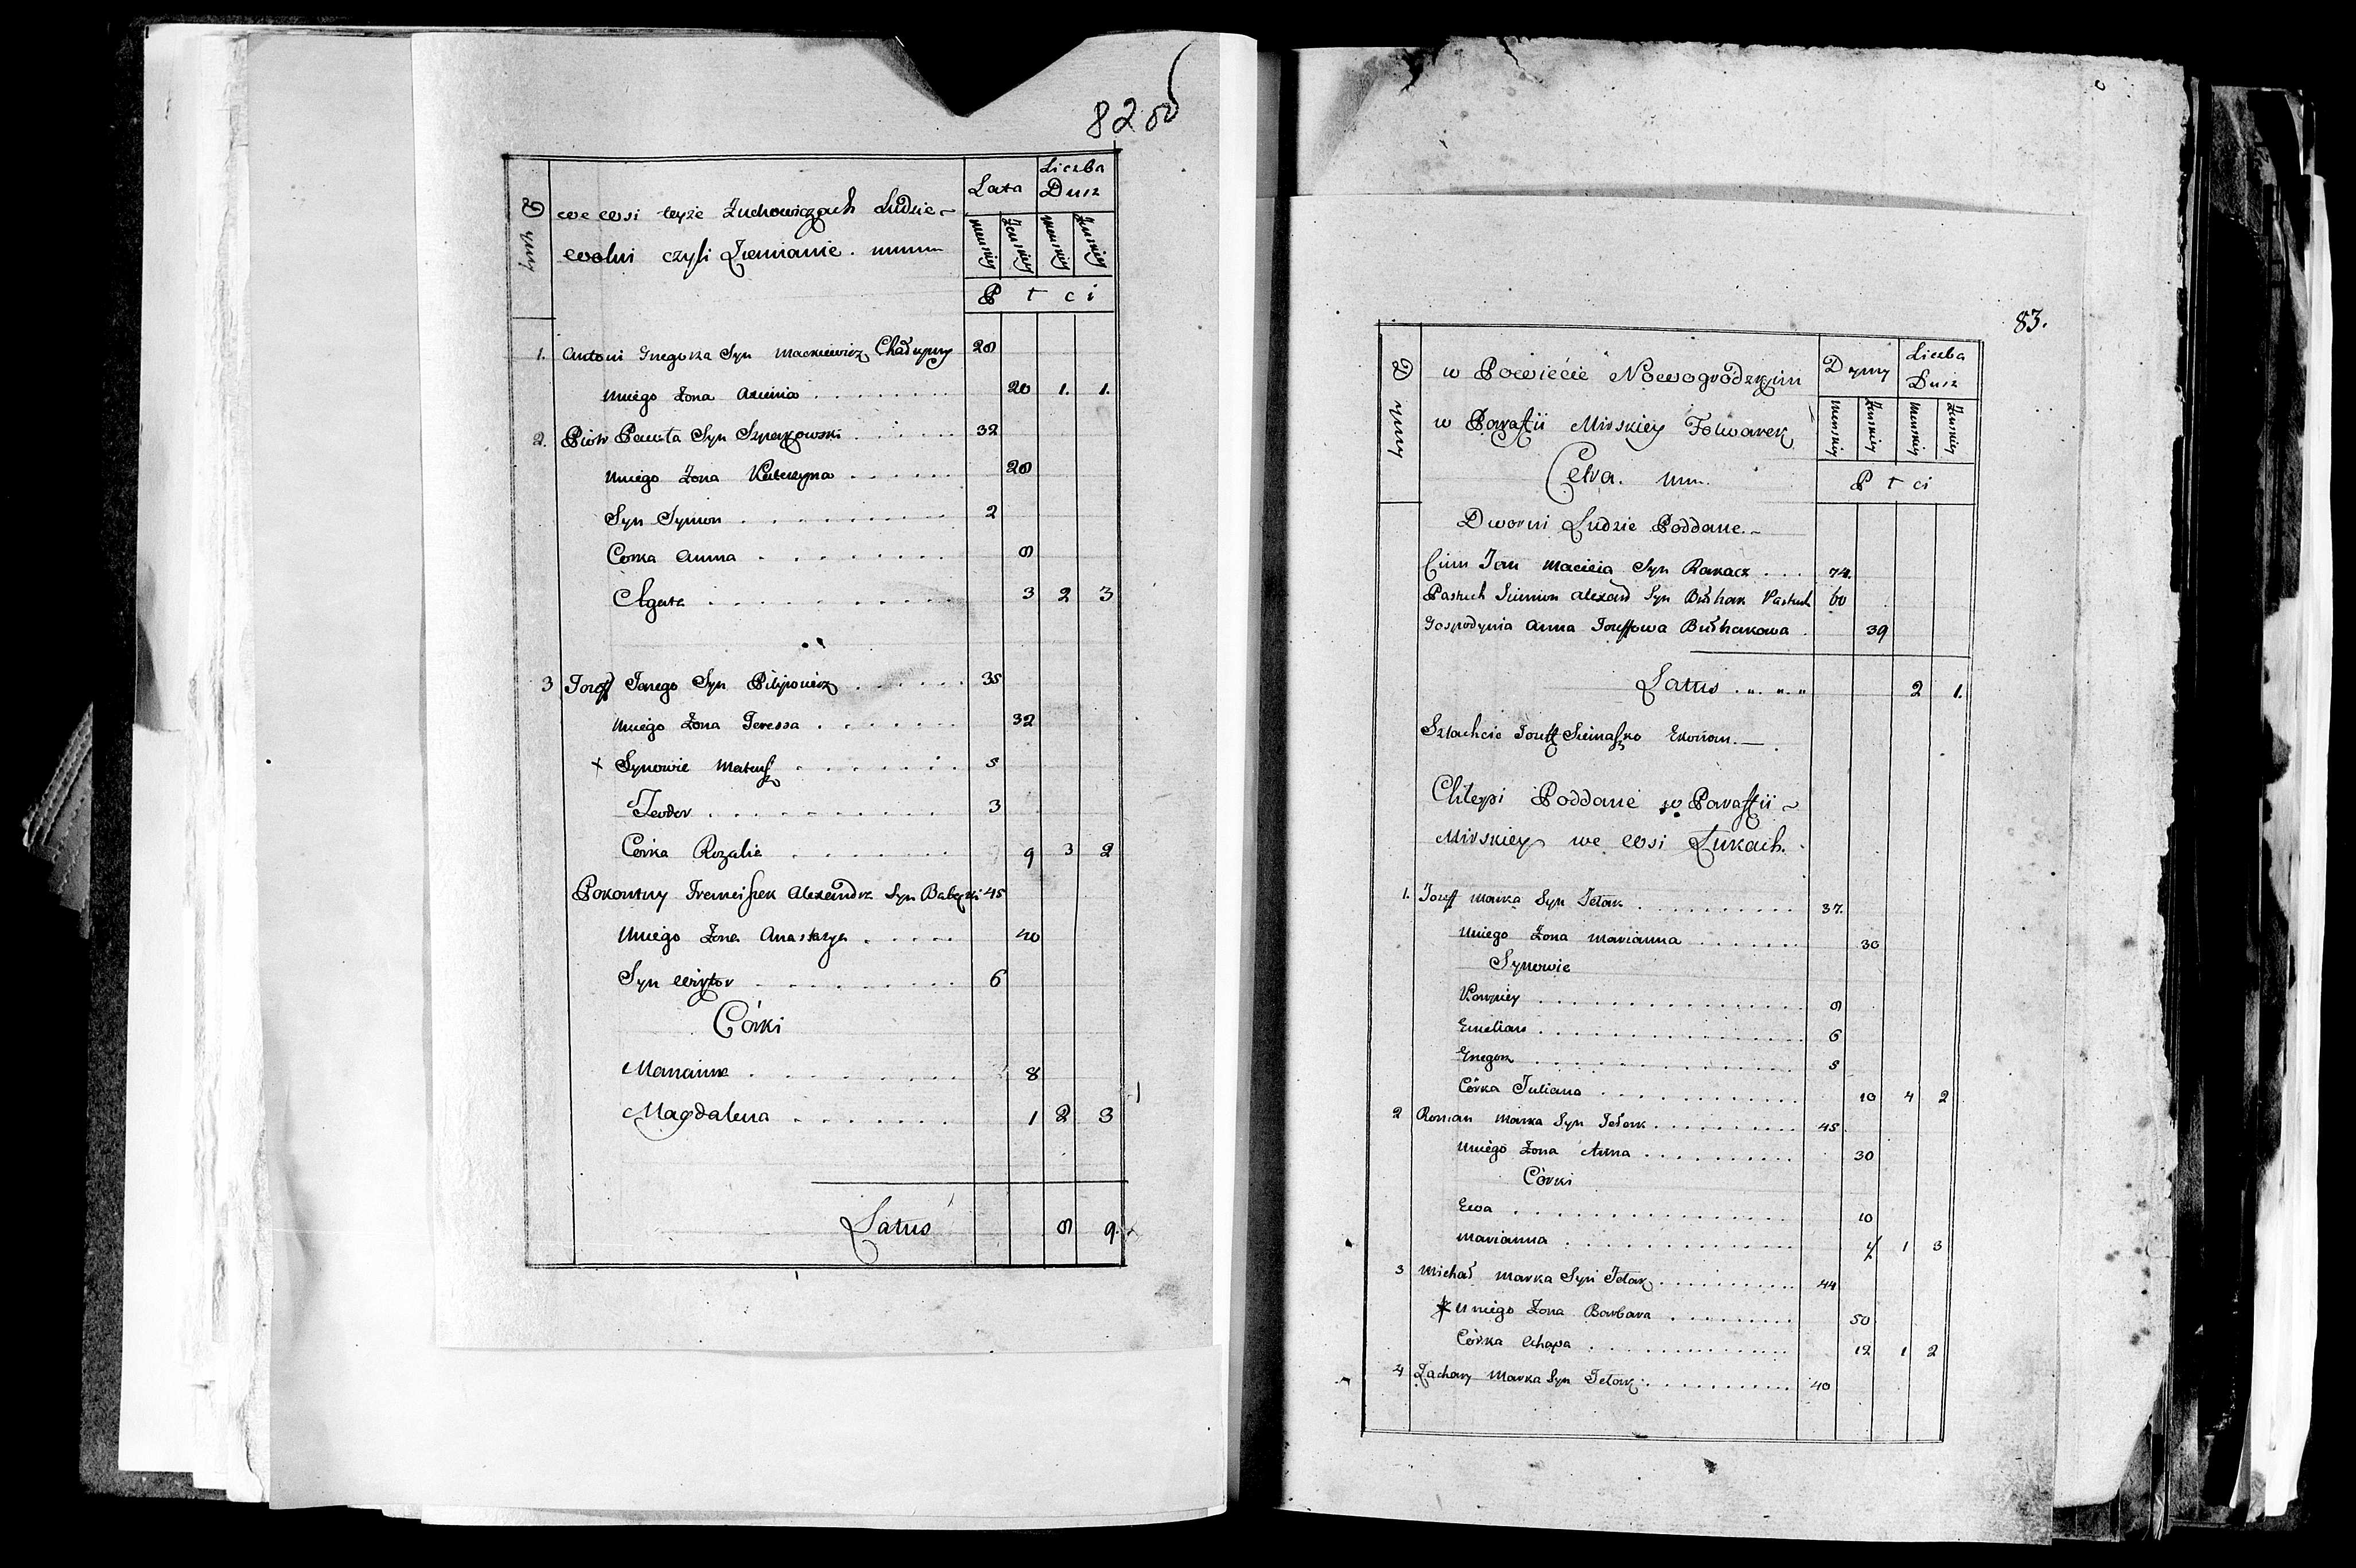 82 об
Dymy
we wsi teyże Żuchowiczach Ludzie
wolni czyli Ziemianie.
Lata
Liczba
Dusz
Menskiey Żenskiey Menskiey Żenskiey
P ł c i
1. Antoni Gregorza Syn Mackiewicz Chałupny 28
Uniego Żona Axinia 20 1. 1.
2. Piotr Pawła Syn 32
Uniego Żona Katerzyna 28
Syn Symon 2
Corka Anna 8
Agata 3 2 3
3 Jozeff Janego Syn Pilipowicz 35
Uniego Żona Teressa 32
x Synowie Mateusz 5
Teodor 3
Córka Rozalia 9 3 2
Pokontny Franciszek Alexandra Syn 45
Uniego Żona Anastazya 40
Syn Wiktor 6
Córki
Marianna 8
Magdalena 1 2 3
Latus 8 9.
83.
Dymy
w Powiećie Nowogrodzkim
w Paraffii Mirskiey Folwarek
Celra.
Dymy
Liczba
Dusz
Menskiey Żenskiey Menskiey Żenskiey
P ł ci
Dworni Ludzie Poddane
Ciwn Jan Macieia Syn Rakacz 74.
Pastuch Siemion Alexand Syn Bułhak Pastuch 60
Gospodynia Anna Jozeffowa Bułhakowa 39
Latus 2 1.
Szlachcic Jozeff Siemaszko Ekonom.
Chłopi Poddane w Paraffii
Mirskiey we wsi Łukach.
1. Jozeff Marka Syn Jetark 37.
Uniego Żona Marianna 30
Synowie
Karpiey 8
Emelian 6
Gregorz 5
Córka Juliana 10 4 2
2 Roman Marka Syn Jetark 45
Uniego Żona Anna 30
Córki
Ewa 10
Marianna 7 1 3
3 Michał Marka Syn Jetark 44
x Uniego Żona Barbara 50
Córka Ahapa 12 1 2
4 Zachary Marka Syn Jetark 40